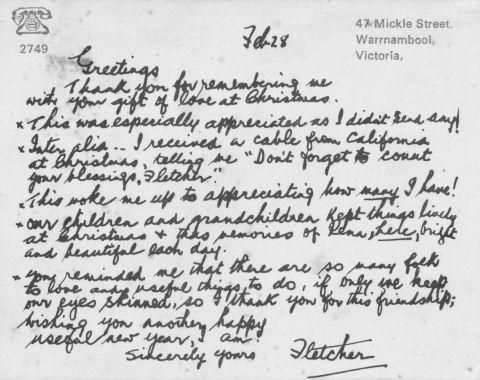 Feb 28
47 Mickle Street,
Warrnambool,
Victoria,
2749
Greetings
Thank you for remembering me
with your gift of love at Christmas.
x This was especially appreciated as I didn't send any!
x Inter alia... I received a cable from California
at Christmas, telling me "Don't forget to count
your blessings, Fletcher."
x This woke me up to appreciating how many I have!
x Our children and grandchildren kept things lively
at Christmas + this memories of Rena, here, bright
and beautiful each day.
x You reminded me that there are so many folk
to love and useful things to do, if only we keep
our eyes skinned, so I thank you for this friendship;
wishing you another happy
useful new year, - am:
Sincerely yours Fletcher